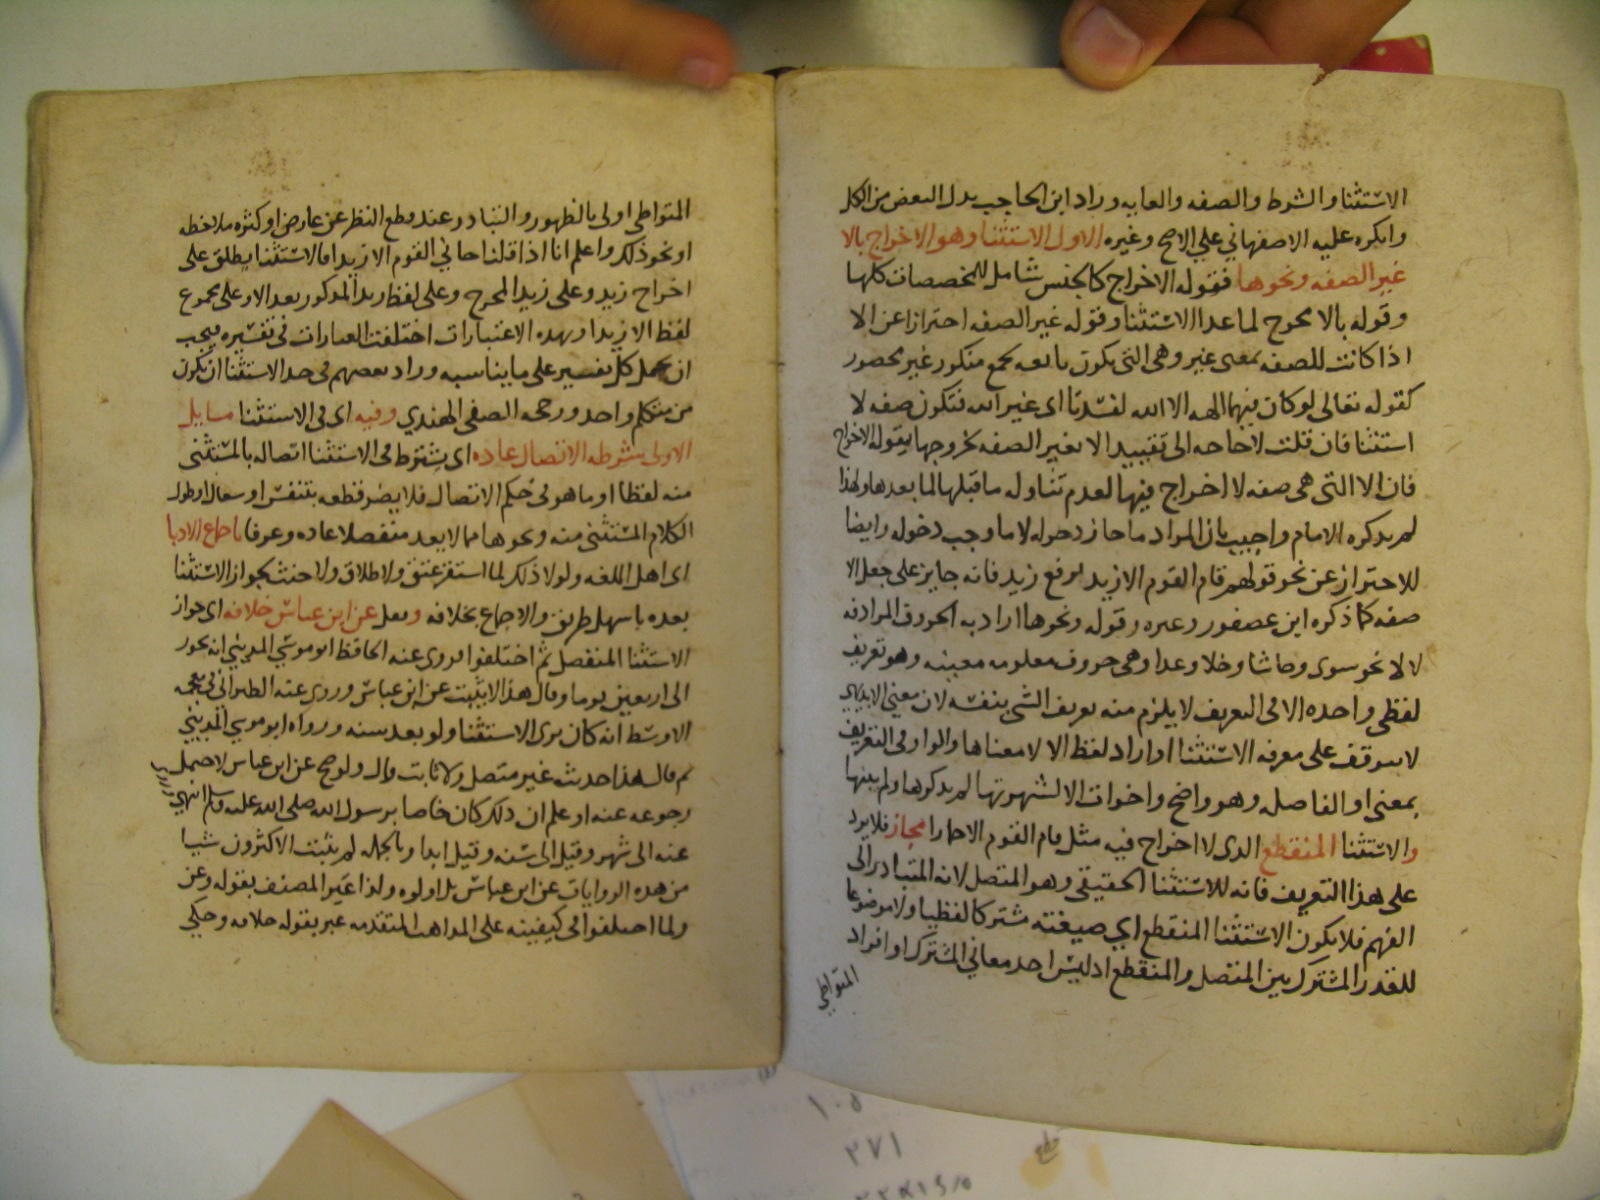 الاستثنا والشرط والصفه والغايه وزاد ابن الحاجب بدل البعض من الكل
وانكره عليه الاصفهاني علي الاصح وغيره الاول الاستثنا وهو الاخراج بالا
غير الصفه ونحوها فقوله الاخراج كالجنس شامل للمخصصات كلها
وقوله بالا مخرج لما عدا الاستثنا وقوله غير الصفه احترازا عن الا
اذا كانت للصفه بمعنى غير وهى التى يكون تابعه لجمع منكور غير محصور
كقوله تعالى لو كان فيهما الهه الا الله لفسدتا اى غير الله فتكون صفه لا
استثنا فان قلت لا حاجه الى تقييد الا بغير الصفه لخروجها بقوله الاخراج
فان الا التى هى صفه لا اخراج فيها لعدم تناول ما قبلها لما بعدها ولهذا
لم يذكره الامام واجيب بان المراد ما جاز دخوله لا ما وجب دخوله وايضا
للاحتراز عن نحو قولهم قام القوم الا زيد برفع زيد فانه جايز على جعل الا
صفه كما ذكره ابن عصفور وغيره وقوله ونحوها اراد به الحروف المرادفه
لالا نحو سوى وحاشا وخلا وعدا وهى حروف معلومه معينه وهو تعريف
لفظى واخده الا فى التعريف لا يلزم منه تعريف الشى بنفسه لان معنى الا بديهي
لا يتوقف على معرفه الاستثنا او اراد لفظ الا لا معناها والواو فى التعريف
بمعنى او الفاصله وهو واضح واخوات الا لشهرتها لم يذكرها ولم يبينها
والاستثنا المنقطع الذى لا اخراج فيه مثل قام القوم الا حمارا مجاز فلا يرد
على هذا التعريف فانه للاستثنا الحقيقى وهو المتصل لانه المتبادر الى
الفهم فلا يكون الاستثنا المنقطع اي صيغته مشتركا لفظيا ولا موضوعا
للقدر المشترك بين المتصل والمنقطع اذ ليس احد معاني المشترك او افراد
المتواطي
المتواطي اولى بالظهور والتبادر عند قطع النظر عن عارض او كثره ملاحظه
او نحو ذلك واعلم انا اذا قلنا جاني القوم الا زيدا فالاستثنا يطلق على
اخراج زيد وعلى زيد المخرج وعلى لفظ زيد المذكور بعد الا وعلى مجموع
لفظ الا زيدا وبهذه الاعتبارات اختلفت العبارات في تفسيره فيجب
ان يحمل كل تفسير على ما يناسبه وزاد بعضهم فى حد الاستثنا ان يكون
من متكلم واحد ورجحه الصفى الهندي وفيه اى فى الاستثنا مسايل
الاولى شرطه الاتصال عاده اى يشترط فى الاستثنا اتصاله بالمستثنى
منه لفظا او ما هو فى حكم الاتصال فلا يضر قطعه بتنفس او سعال او طول
الكلام المستثنى منه ونحوها مما لا يعد منفصلا عاده وعرفا باجماع الادبا
اى اهل اللغه ولولا ذلك لما استقر عتق ولا طلاق ولا حنث لجواز الاستثنا
بعده باسهل طريق والاجماع بخلافه ونقل عن ابن عباس خلافه اى جواز
الاستثنا المنفصل ثم اختلفوا فروى عنه الحافظ ابو موسى المديني انه يجوز
الى اربعين يوما وقال هذا لا يثبت عن ابن عباس وروى عنه الطبراني في معجمه
الاوسط انه كان يرى الاستثنا ولو بعد سنه ورواه ابو موسي المديني
ثم قال هذا حديث غير متصل ولا ثابت وقال ولو صح عن ابن عباس لاحتمل
رجوعه عنه او علم ان ذلك كان خاصا برسول الله صلى الله عليه وسلم انتهي وروى
عنه الى شهر وقيل الى سنه وقيل ابدا وبالجمله لم يثبت الاكثرون شيا
من هذه الروايات عن ابن عباس بل اولوه ولذا غير المصنف بقوله وعن
ولما اختلفوا فى كيفيته على المذاهب المتقدمه عبر بقوله خلافه وحكي
١٠٥
٢٧١